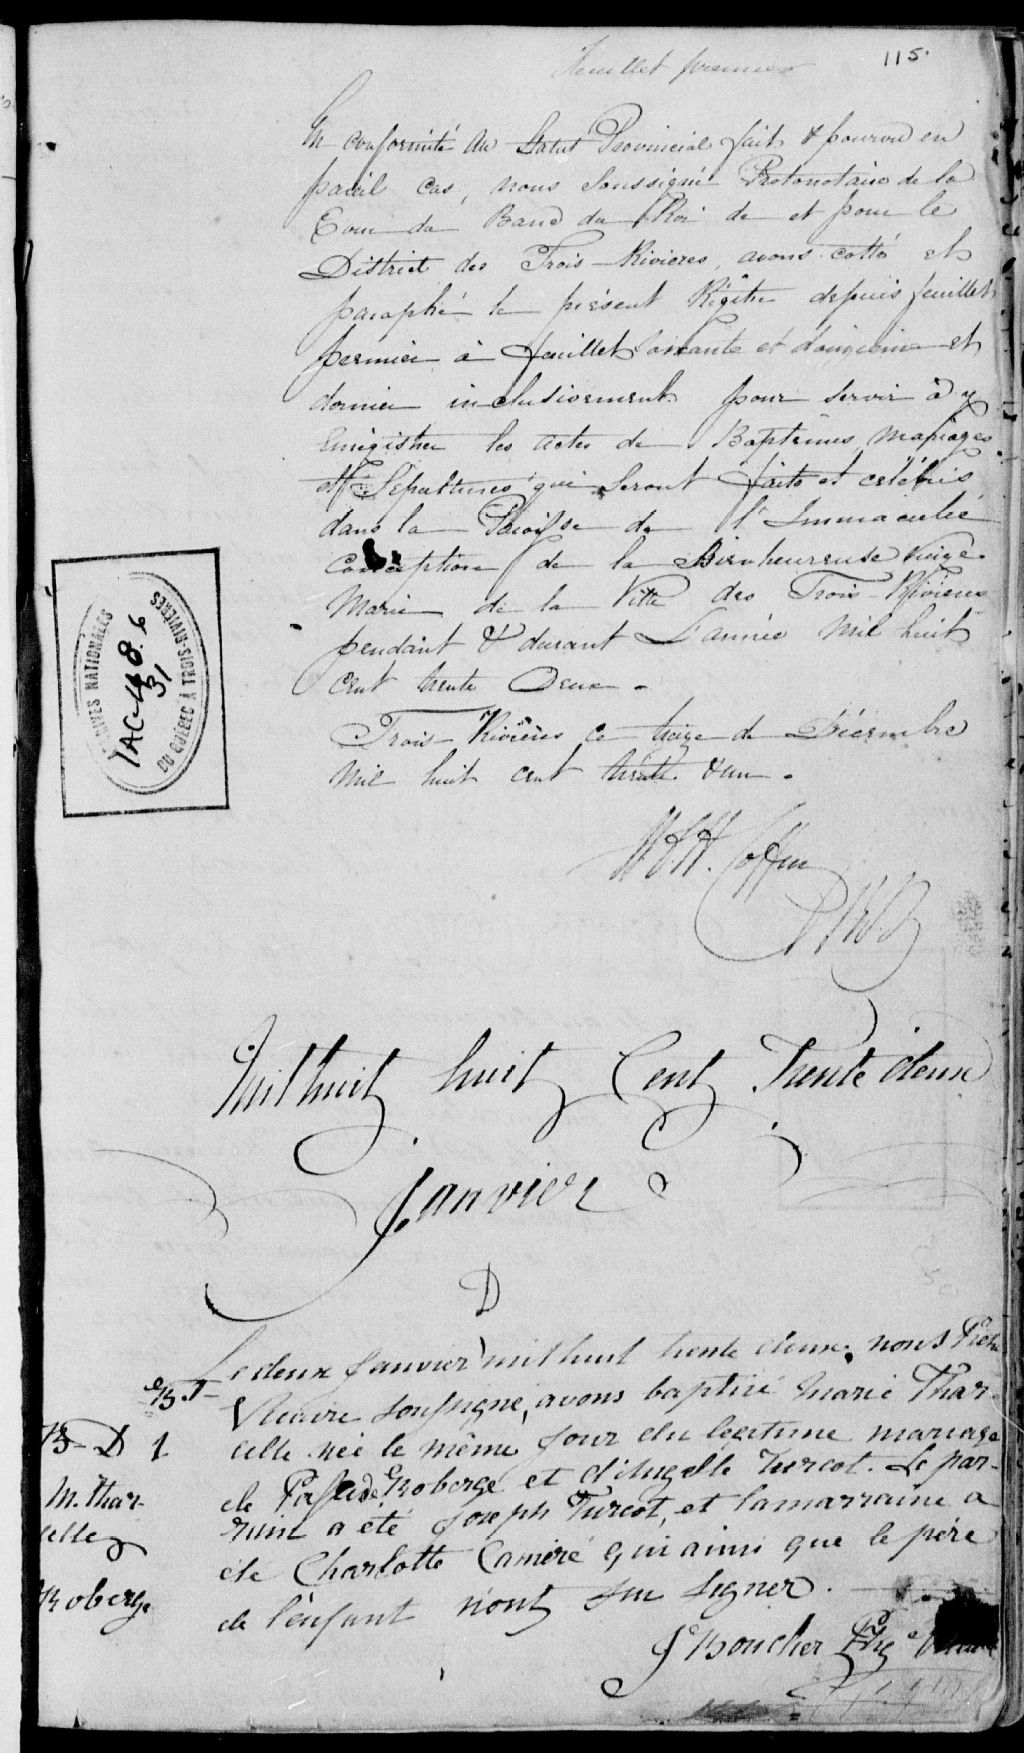 115.
Feuillet premier
En conformité du Statut Provincial fait & pourvu en
pareil cas, nous Soussigné Protonotaire de la
Cour du Banc du Roi de et pour le
District des Trois-Rivieres, avons cotté et
paraphé le présent Régitre depuis feuillet
premier à feuillet soixante et douzieme et
dernier inclusivement pour servir à y
Enrégistrer les actes de Baptêmes, Mariages
et Sépultures qui seront faits et célébrés
dans la Paroisse de l'Immaculée
Conception de la Bienheureuse Vierge
Marie de la Ville des Trois-Rivieres
pendant & durant L'année Mil huit
cent trente Deux.
Trois-Rivières ce treize de Décembre
Mil huit cent trente & un.
Coffin
ARCHIVES NATIONALES
DU QUÉBEC À TROIS-RIVIÈRES
1AC-48.6
31
Mil huit huit Cent Trente deux
Janvier
D
B-D 1
M. Thar-
celle
Roberge
Le deux Janvier mil huit trente deux, nous Prêtre
Vicaire soussigné, avons baptisé Marie Thar-
celle née le même jour du légitime mariage
de Roberge et d'Angelle Turcot. Le par-
rain a été Joseph Turcot, et la marraine a
été Charlotte Camiré qui ainsi que le père
de l'enfant n'ont su signer.
J Boucher Ptre